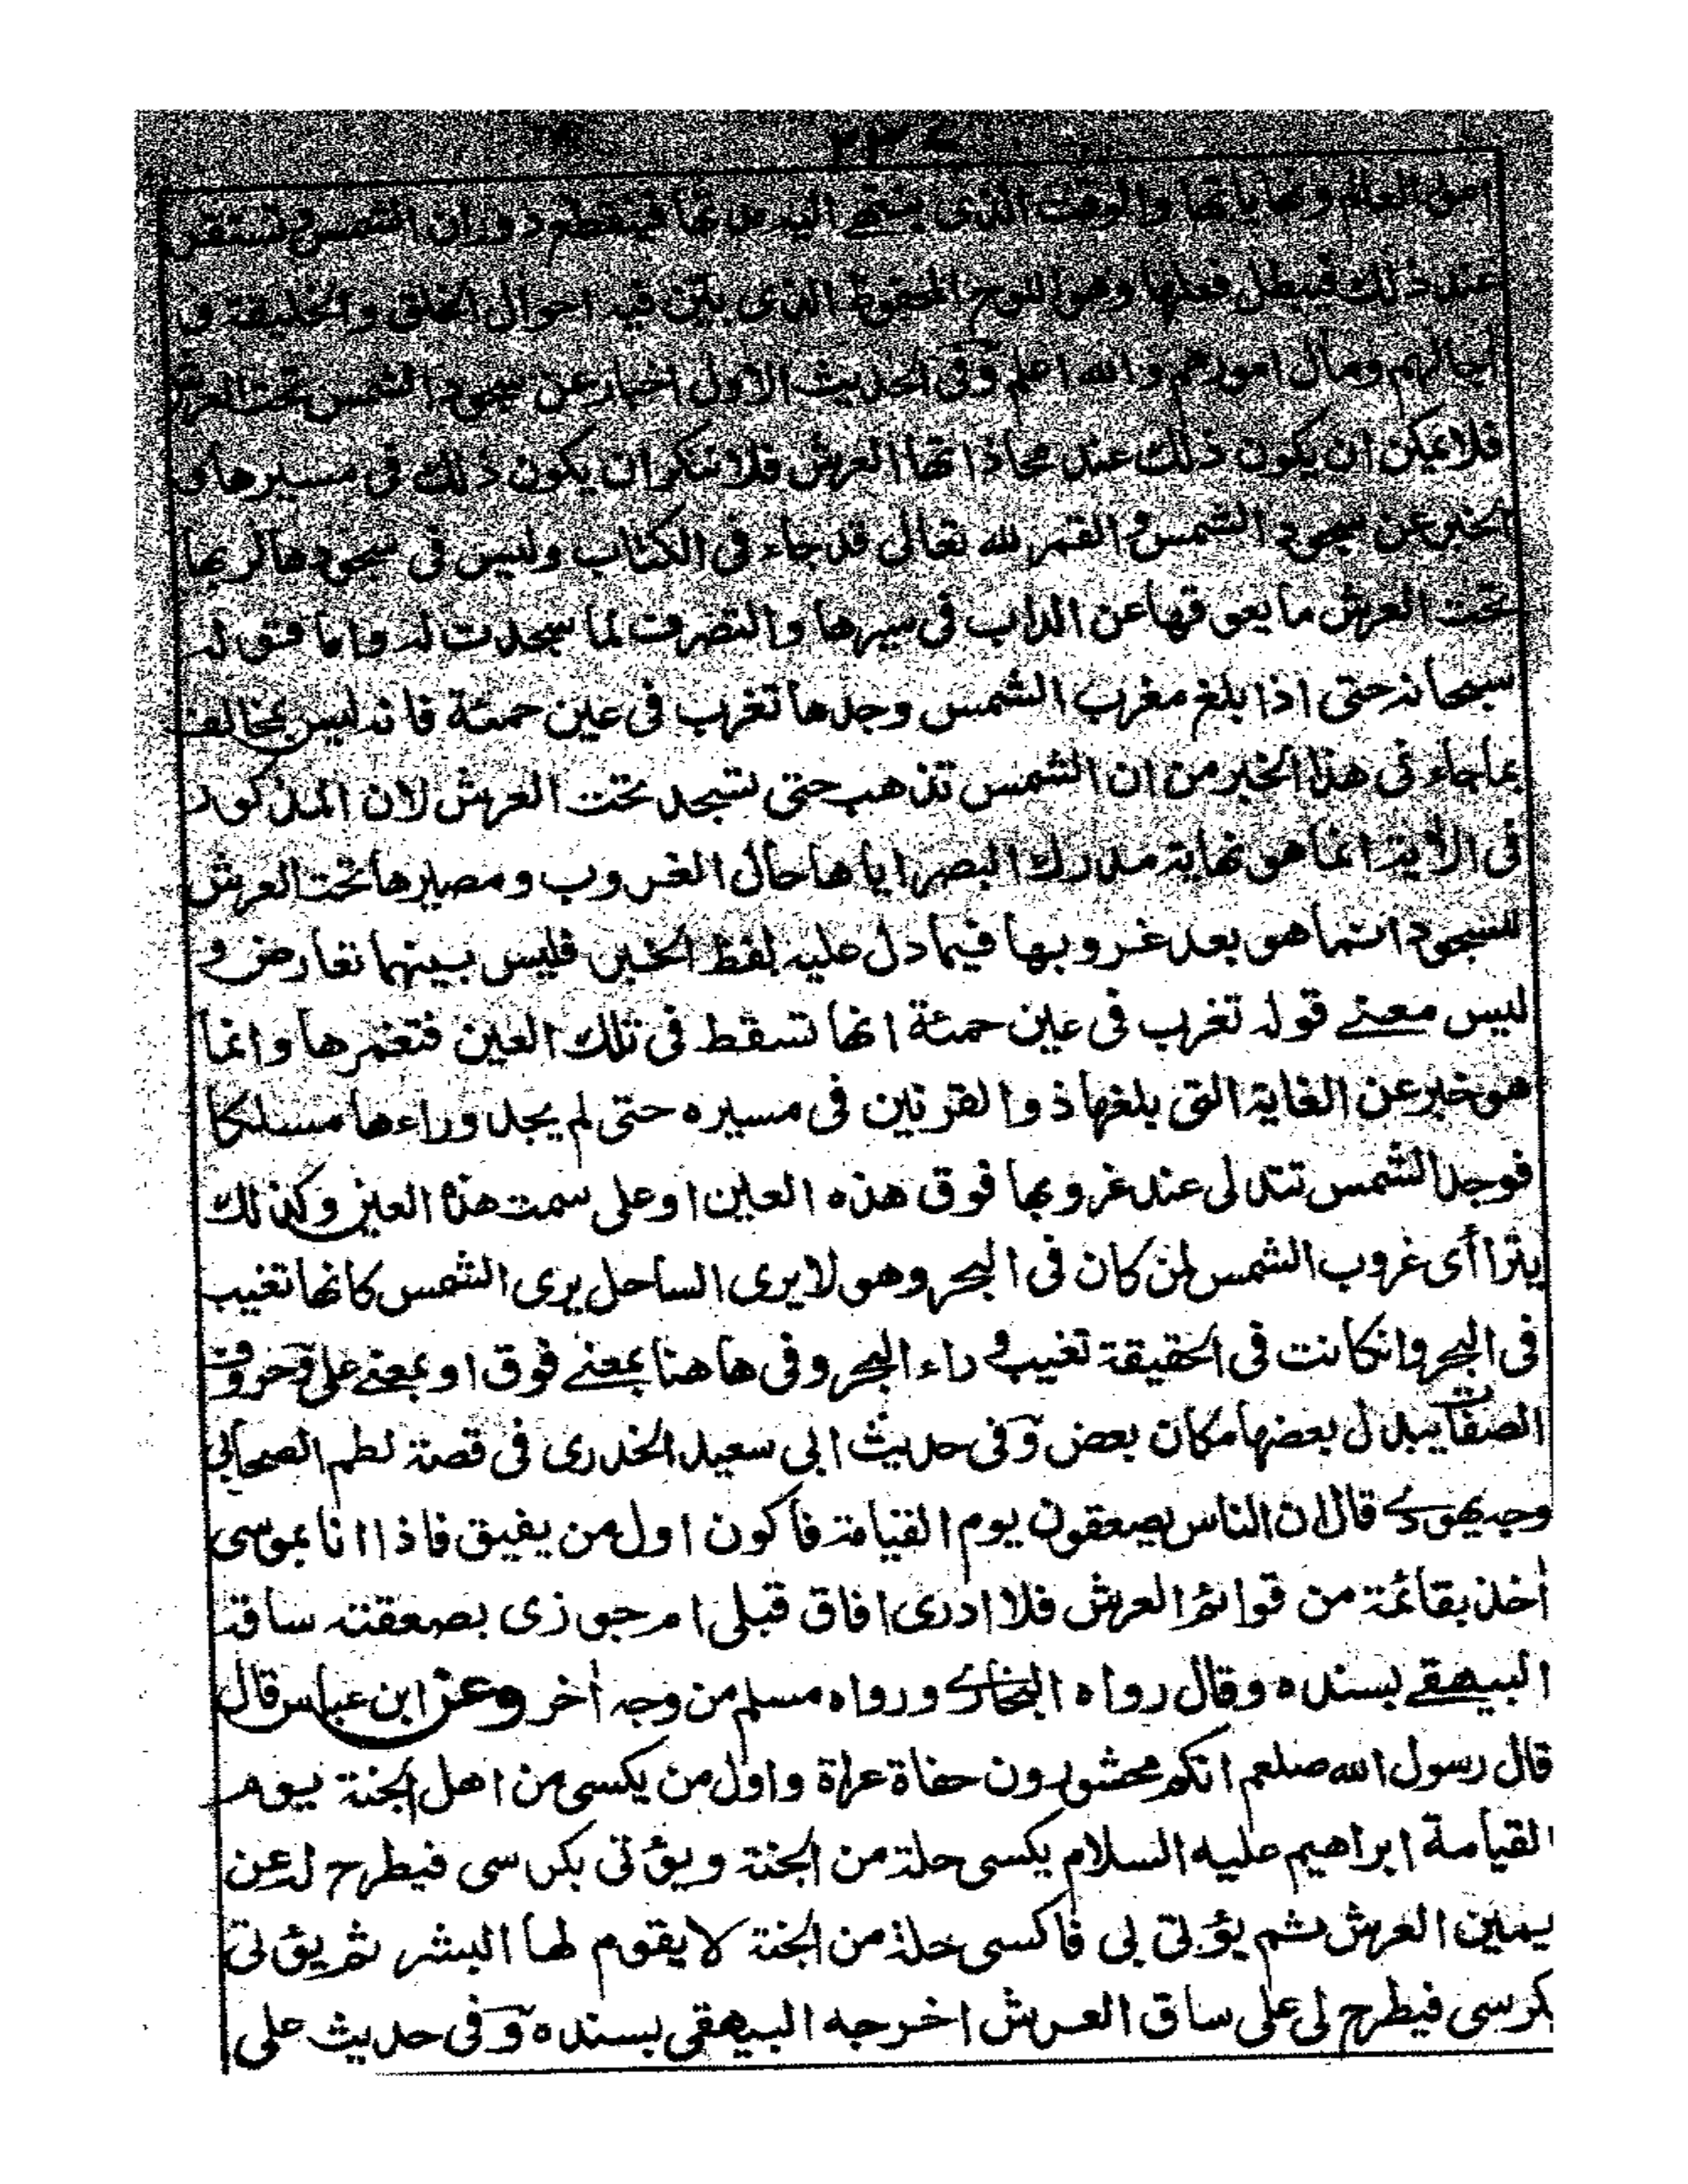 العالم ونهاياتها والوقت الذى ينتهى اليه مدتها فينقطع دوران الشمس وتستقر
عند ذلك فيبطل فعلها وهو اللوح المحفوظ الذى بين فيه احوال الخلق والخليقة و
اجالهم ومآل امورهم والله اعلم وفى الحديث الاول اخبار عن سجود الشمس تحت العرش
فلا يمكن ان يكون ذلك عند محاذاتها العرش فلا ننكر ان يكون ذلك فى مسيرها و
الخبر عن سجود الشمس والقمر لله تعالى قد جاء فى الكتاب وليس فى سجودها لربها
تحت العرش ما يعوقها عن الداب فى سيرها والتصرف لما سجدت له واما قوله
سبحانه حتى اذا بلغ مغرب الشمس وجدها تغرب فى عين حمئة فانه ليس بمخالف
بما جاء فى هذا الخبر من ان الشمس تذهب حتى تسجد تحت العرش لان المذكور
فى الاية انما هو نهاية مدرك البصر اياها حال الغروب ومصيرها تحت العرش
للسجود انما هو بعد غروبها فيما دل عليه لفظ الخبر فليس بينهما تعارض و
ليس معنى قوله تغرب فى عين حمئة انها تسقط فى تلك العين فتغمرها وانما
هو خبر عن الغاية التى بلغها ذو القرنين فى مسيره حتى لم يجد وراءها مسلكا
فوجد الشمس تتدلى عند غروبها فوق هذه العين او على سمت هذه العين وكذلك
يتراأى غروب الشمس لمن كان فى البحر وهو لا يرى الساحل يرى الشمس كانها تغيب
فى البحر وانكانت فى الحقيقة تغيب وراء البحر وفى هاهنا بمعنى فوق او بمعنى على وحروف
الصفات يبدل بعضها مكان بعض وفى حديث ابى سعيد الخدرى فى قصة لطم الصحابى
وجه يهودى قال ان الناس يصعقون يوم القيامة فاكون اول من يفيق فاذا انا بموسى
أخذ بقائمة من قوائم العرش فلا ادرى افاق قبلى ام جوزى بصعقته ساقه
البيهقى بسنده وقال رواه البخارى ورواه مسلم من وجه أخر وعن ابن عباس قال
قال رسول الله صلعم انكم محشورون حفاة عراة واول من يكسى من اهل الجنة يوم
القيامة ابراهيم عليه السلام يكسى حلة من الجنة ويؤتى بكرسى فيطرح له عن
يمين العرش ثم يؤتى بى فاكسى حلة من الجنة لا يقوم لها البشر ثم يؤتى
بكرسى فيطرح لى على ساق العرش اخرجه البيهقى بسنده وفى حديث على